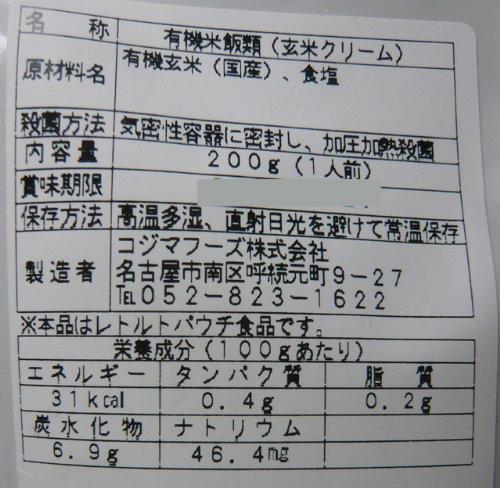 名称 有機米飯類(玄米クリーム)
原材料名 有機玄米(国産)、食塩
殺菌方法 気密性容器に密封し、加圧加熱殺菌
内容量 200g(1人前)
賞味期限
保存方法 高温多湿、直射日光を避けて常温保存
製造者 コジマフーズ株式会社
名古屋市南区呼続元町9-27
TEL052-823-1622
※本品はレトルトパウチ食品です。
栄養成分(100gあたり)
エネルギー タンパク質 脂質
31kcal 0.4g 0.2g
炭水化物 ナトリウム
6.9g 46.4mg